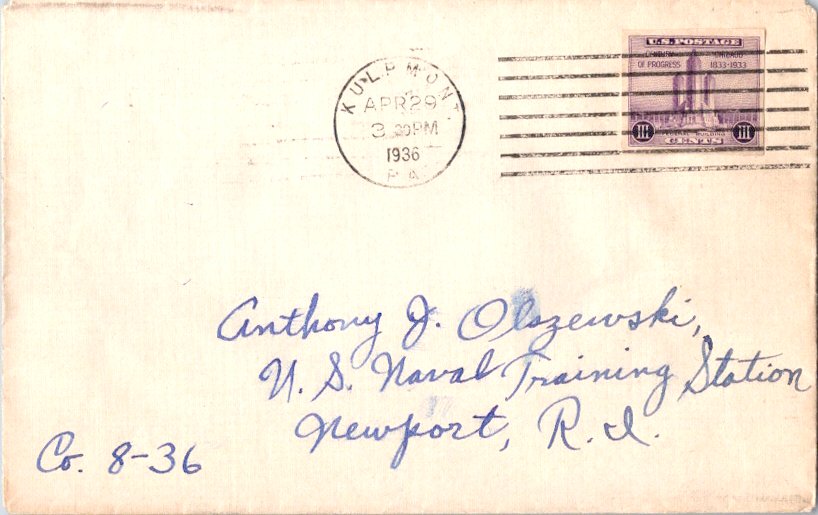 KULPMONT
APR 29
3 30 PM
1936
PA.
U.S. POSTAGE
CENTURY OF PROGRESS
CHICAGO 1833-1933
FEDERAL BUILDING
III III
CENTS
Anthony J. Olszewski,
U. S. Naval Training Station
Newport, R. I.
Co. 8-36